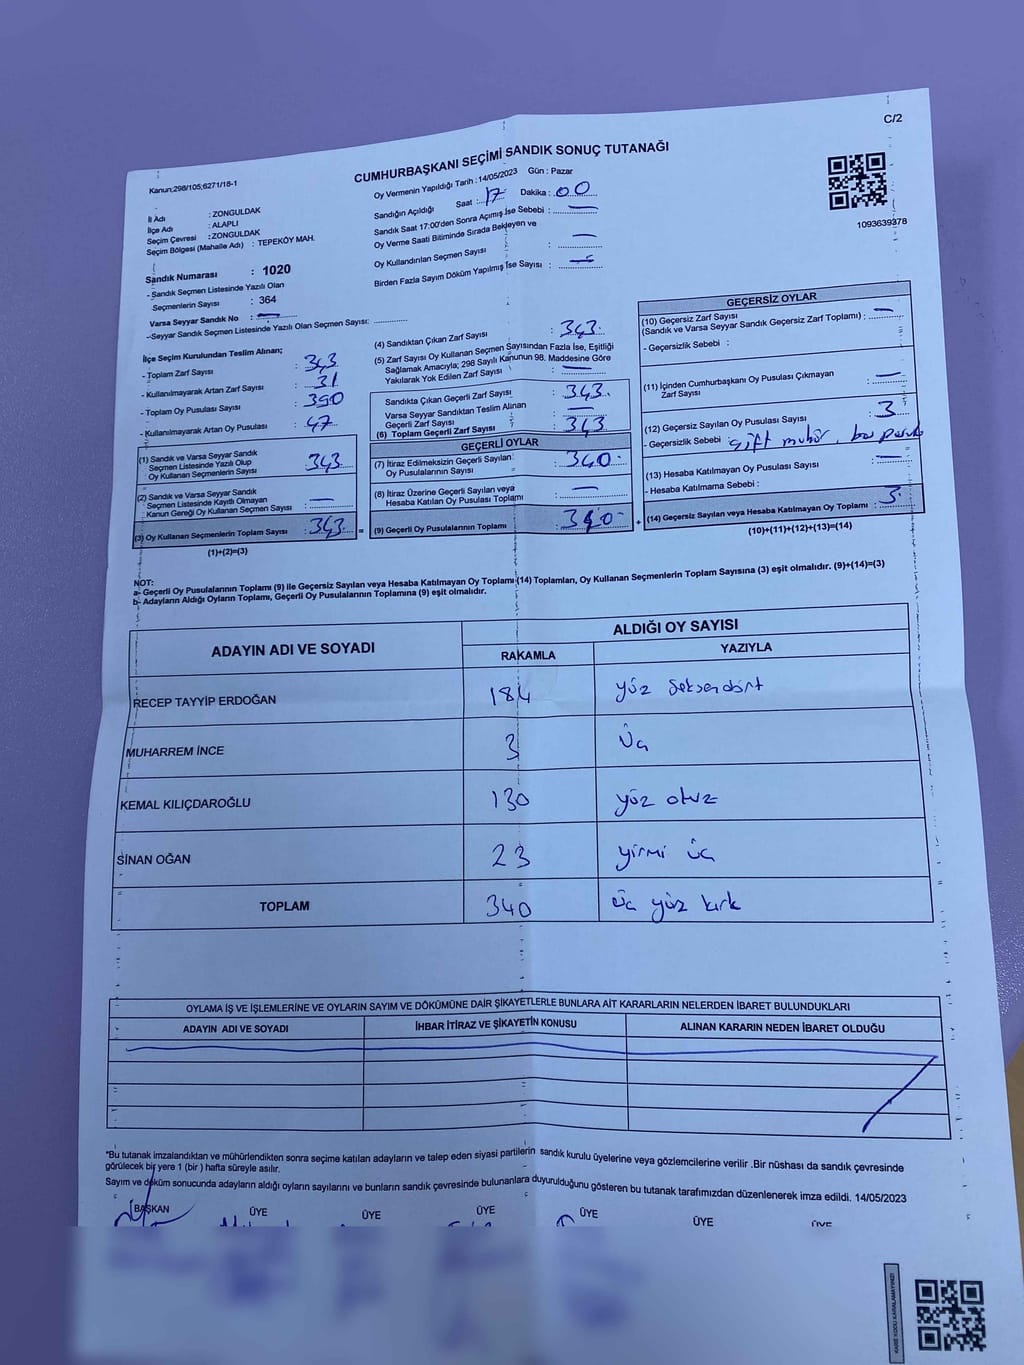 C/2
Kanun;298/105;6271/18-1
CUMHURBAŞKANI SEÇİMİ SANDIK SONUÇ TUTANAĞI
1093639378
İl Adı : ZONGULDAK
İlçe Adı : ALAPLI
Seçim Çevresi : ZONGULDAK
Seçim Bölgesi (Mahalle Adı) : TEPEKÖY MAH.
Sandık Numarası : 1020
- Sandık Seçmen Listesinde Yazılı Olan
Seçmenlerin Sayısı : 364
Varsa Seyyar Sandık No : —
-Seyyar Sandık Seçmen Listesinde Yazılı Olan Seçmen Sayısı:
Oy Vermenin Yapıldığı Tarih : 14/05/2023 Gün : Pazar
Sandığın Açıldığı Saat : 17 Dakika : 00
Sandık Saat 17:00'den Sonra Açımış İse Sebebi : —
Oy Verme Saati Bitiminde Sırada Bekleyen ve
Oy Kullandırılan Seçmen Sayısı : —
Birden Fazla Sayım Döküm Yapılmış İse Sayısı : —
İlçe Seçim Kurulundan Teslim Alınan;
- Toplam Zarf Sayısı : 343
- Kullanılmayarak Artan Zarf Sayısı : 31
- Toplam Oy Pusulası Sayısı : 390
- Kullanılmayarak Artan Oy Pusulası : 47
(1) Sandık ve Varsa Seyyar Sandık
Seçmen Listesinde Yazılı Olup
Oy Kullanan Seçmenlerin Sayısı : 343
(2) Sandık ve Varsa Seyyar Sandık
Seçmen Listesinde Kayıtlı Olmayan
Kanun Gereği Oy Kullanan Seçmen Sayısı : —
(3) Oy Kullanan Seçmenlerin Toplam Sayısı : 343
(1)+(2)=(3)
(4) Sandıktan Çıkan Zarf Sayısı : 343
(5) Zarf Sayısı Oy Kullanan Seçmen Sayısından Fazla İse, Eşitliği
Sağlamak Amacıyla; 298 Sayılı Kanunun 98. Maddesine Göre
Yakılarak Yok Edilen Zarf Sayısı : —
Sandıkta Çıkan Geçerli Zarf Sayısı : 343
Varsa Seyyar Sandıktan Teslim Alınan
Geçerli Zarf Sayısı : —
(6) Toplam Geçerli Zarf Sayısı : 343
GEÇERLİ OYLAR
(7) İtiraz Edilmeksizin Geçerli Sayılan
Oy Pusulalarının Sayısı : 340
(8) İtiraz Üzerine Geçerli Sayılan veya
Hesaba Katılan Oy Pusulası Toplamı : —
(9) Geçerli Oy Pusulalarının Toplamı : 340
GEÇERSİZ OYLAR
(10) Geçersiz Zarf Sayısı
(Sandık ve Varsa Seyyar Sandık Geçersiz Zarf Toplamı) : —
- Geçersizlik Sebebi :
(11) İçinden Cumhurbaşkanı Oy Pusulası Çıkmayan
Zarf Sayısı : —
(12) Geçersiz Sayılan Oy Pusulası Sayısı : 3
- Geçersizlik Sebebi çift mühür, boş pusula
(13) Hesaba Katılmayan Oy Pusulası Sayısı : —
- Hesaba Katılmama Sebebi :
(14) Geçersiz Sayılan veya Hesaba Katılmayan Oy Toplamı : 3
(10)+(11)+(12)+(13)=(14)
NOT:
a- Geçerli Oy Pusulalarının Toplamı (9) ile Geçersiz Sayılan veya Hesaba Katılmayan Oy Toplamı (14) Toplamları, Oy Kullanan Seçmenlerin Toplam Sayısına (3) eşit olmalıdır. (9)+(14)=(3)
b- Adayların Aldığı Oyların Toplamı, Geçerli Oy Pusulalarının Toplamına (9) eşit olmalıdır.
ADAYIN ADI VE SOYADI ALDIĞI OY SAYISI
RAKAMLA YAZIYLA
RECEP TAYYİP ERDOĞAN 184 yüz seksendört
MUHARREM İNCE 3 Üç
KEMAL KILIÇDAROĞLU 130 yüz otuz
SİNAN OĞAN 23 yirmi üç
TOPLAM 340 üç yüz kırk
OYLAMA İŞ VE İŞLEMLERİNE VE OYLARIN SAYIM VE DÖKÜMÜNE DAİR ŞİKAYETLERLE BUNLARA AİT KARARLARIN NELERDEN İBARET BULUNDUKLARI
ADAYIN ADI VE SOYADI İHBAR İTİRAZ VE ŞİKAYETİN KONUSU ALINAN KARARIN NEDEN İBARET OLDUĞU
"Bu tutanak imzalandıktan ve mühürlendikten sonra seçime katılan adayların ve talep eden siyasi partilerin sandık kurulu üyelerine veya gözlemcilerine verilir .Bir nüshası da sandık çevresinde
görülecek bir yere 1 (bir ) hafta süreyle asılır.
Sayım ve döküm sonucunda adayların aldığı oyların sayılarını ve bunların sandık çevresinde bulunanlara duyurulduğunu gösteren bu tutanak tarafımızdan düzenlenerek imza edildi. 14/05/2023
BAŞKAN ÜYE ÜYE ÜYE ÜYE ÜYE ÜYE